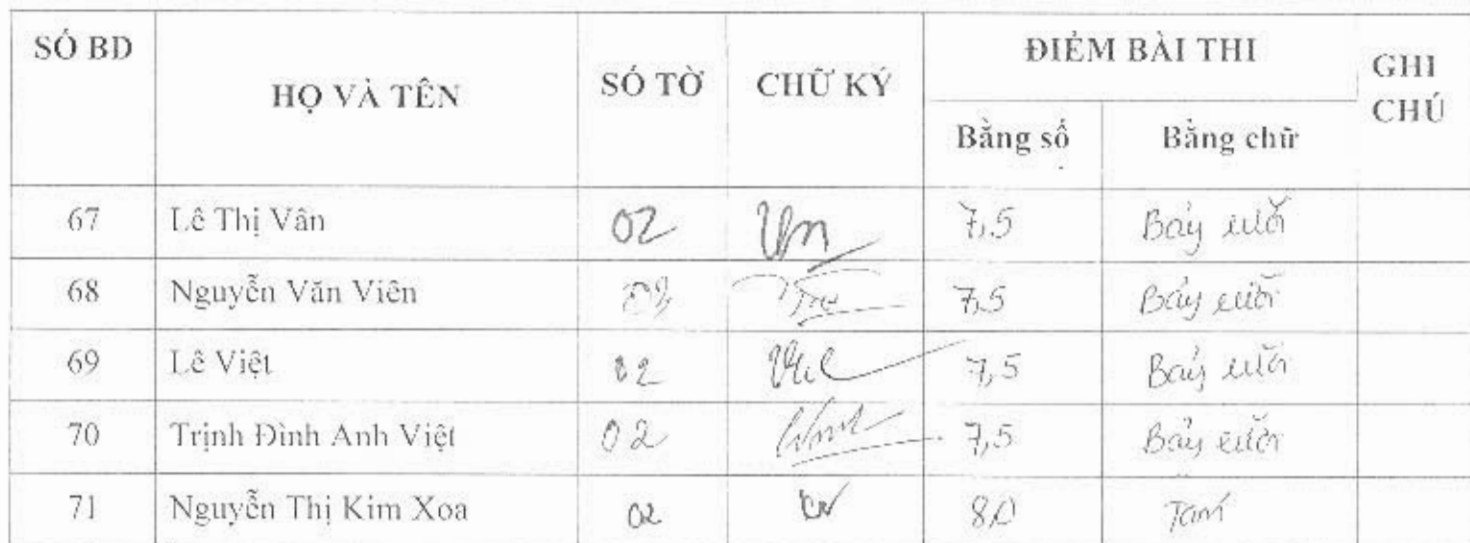 SỐ BD HỌ VÀ TÊN SỐ TỜ CHỮ KÝ ĐIỂM BÀI THI GHI CHÚ
Bằng số Bằng chữ
67 Lê Thị Vân 02 7,5 Bảy rưỡi
68 Nguyễn Văn Viên 7,5 Bảy rưỡi
69 Lê Việt 02 7,5 Bảy rưỡi
70 Trịnh Đình Anh Việt 02 7,5 Bảy rưỡi
71 Nguyễn Thị Kim Xoa 02 8,0 Tám